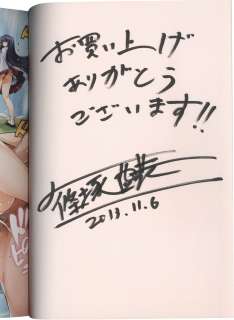 お買い上げ
ありがとう
ございます!!
篠塚
2013.11.6